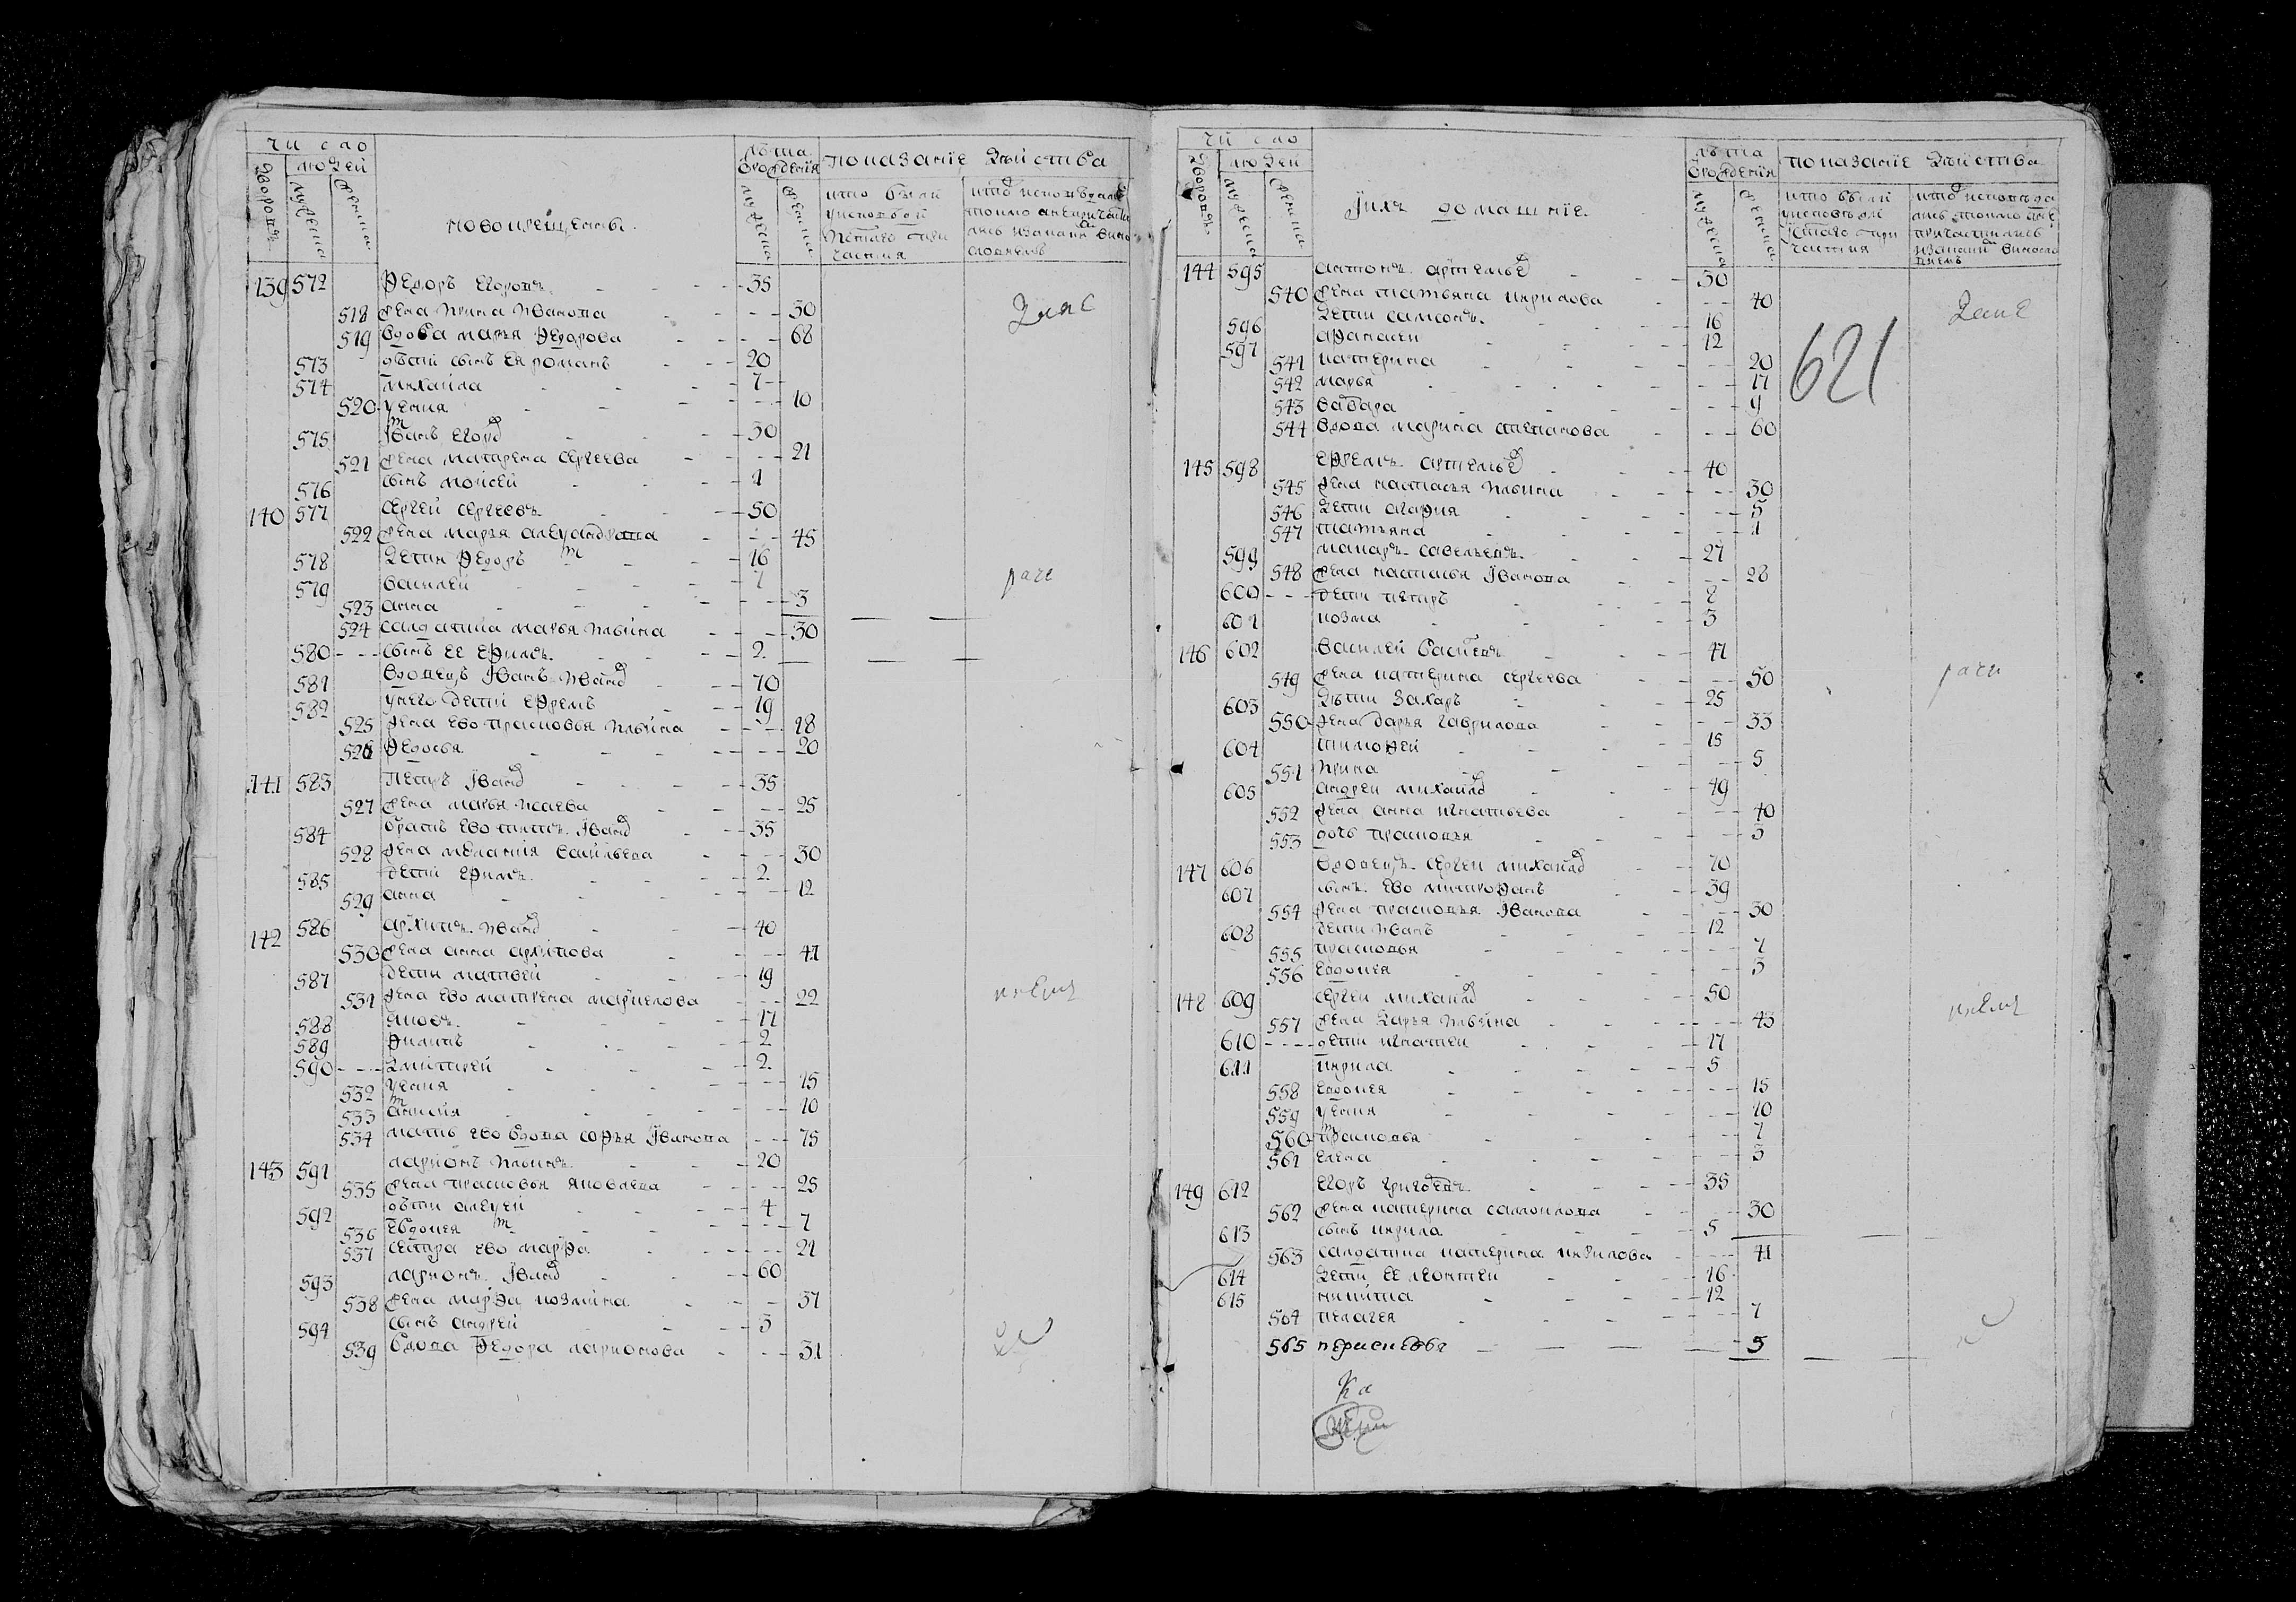 число
людей
дворовъ
мужеска
женска
новокрещенны
лѣта
врожденїя
мужеска
женска
показанїе действа
кто были
у исповеди
и свѣтаго при
частия
кто исповедале
токмо а не причасти
лись и за каки вино
словиемъ
139 572 Федоръ Егоровъ 35
518 жена Ирина Иванова 30
519 вдова марья Федорова 68
573 дѣти сынъ ея романъ 20
574 михаила 7
520 уения 10
575 Иванъ Егой 30
521 жена матрена сергеева 21
576 сынъ моисей 1
140 577 сергей сергеевъ 50
522 жена марья алеѯандрова 45
578 дети Федоръ 16
579 василей 7
523 анна 3
524 салдатка марья Ильина 30
580 сынъ ее ефимъ 2
581 вдовецъ Иванъ Ивано 70
582 у него дети ефремъ 19
525 жена ево прасковья Ильина 18
526 Федосья 20
141 583 петръ Ивано 35
527 жена марья Исаева 25
584 братъ ево титъ Ивано 35
528 жена мелания васильева 30
585 дети ефимъ 2
529 анна 12
142 586 архипъ Ивано 40
530 жена анна архипова 41
587 дети матвей 19
531 жена ево матрена маркелова 22
588 яковъ 17
589 Филипъ 2
590 дмитрей 2
532 уения 15
533 анисия 10
534 мать ево вдова софья Иванова 75
143 591 ларионъ Ильинъ 20
535 жена прасковья яковлева 25
592 дѣти алеѯей 4
536 Евдокея 7
537 сестра ево марфа 21
593 ларионъ Ивано 60
538 жена марфа козмина 37
594 сынъ андрей 3
539 вдова Федора ларионова 31
число
людей
дворовъ
мужеска
женска
Ихъ домашние
лѣта
врожденїя
мужеска
женска
показанїе действа
кто были
у исповѣди
и свѣтаго при
частия
кто исповѣда
лись токмо а не
причастились
и за каки виносло
виемъ
621
144 595 антонъ артемье 50
540 жена татьяна кирилова 40
596 дети самсонъ 16
597 афанасеи 12
541 катерина 20
542 марья 17
543 вавара 9
544 вдова марина степанова 60
145 598 ефремъ артемье 40
545 жена настасья Ильина 30
546 дети агафия 5
547 татьяна 1
599 макаръ савельевъ 27
548 жена настасья Иванова 28
600 дети петръ 8
601 козма 3
146 602 василей васильевъ 41
549 жена катерина сергеева 50
603 дѣти захаръ 25
550 жена дарья гаврилова 33
604 тимофей 15
551 Ирина 5
605 андреи михаило 49
552 жена анна игнатьева 40
553 дочь прасковья 3
147 606 вдовецъ сергеи михаило 70
607 сынъ ево миткофанъ 39
554 жена прасковья Иванова 30
608 дети Иванъ 12
555 прасковья 7
556 Евдокея 3
148 609 сергеи михаило 50
557 жена дарья Ильина 43
610 дети игнатеи 17
611 кирила 5
558 евдокея 15
559 уения 10
560 прасковья 7
561 елена 3
149 612 егоръ григоревъ 35
562 жена катерина самоилова 30
613 сынъ кирила 5
563 салдатка катерина кирилова 41
614 дети ее леонтеи 16
615 никита 12
564 пелагея 7
565 5